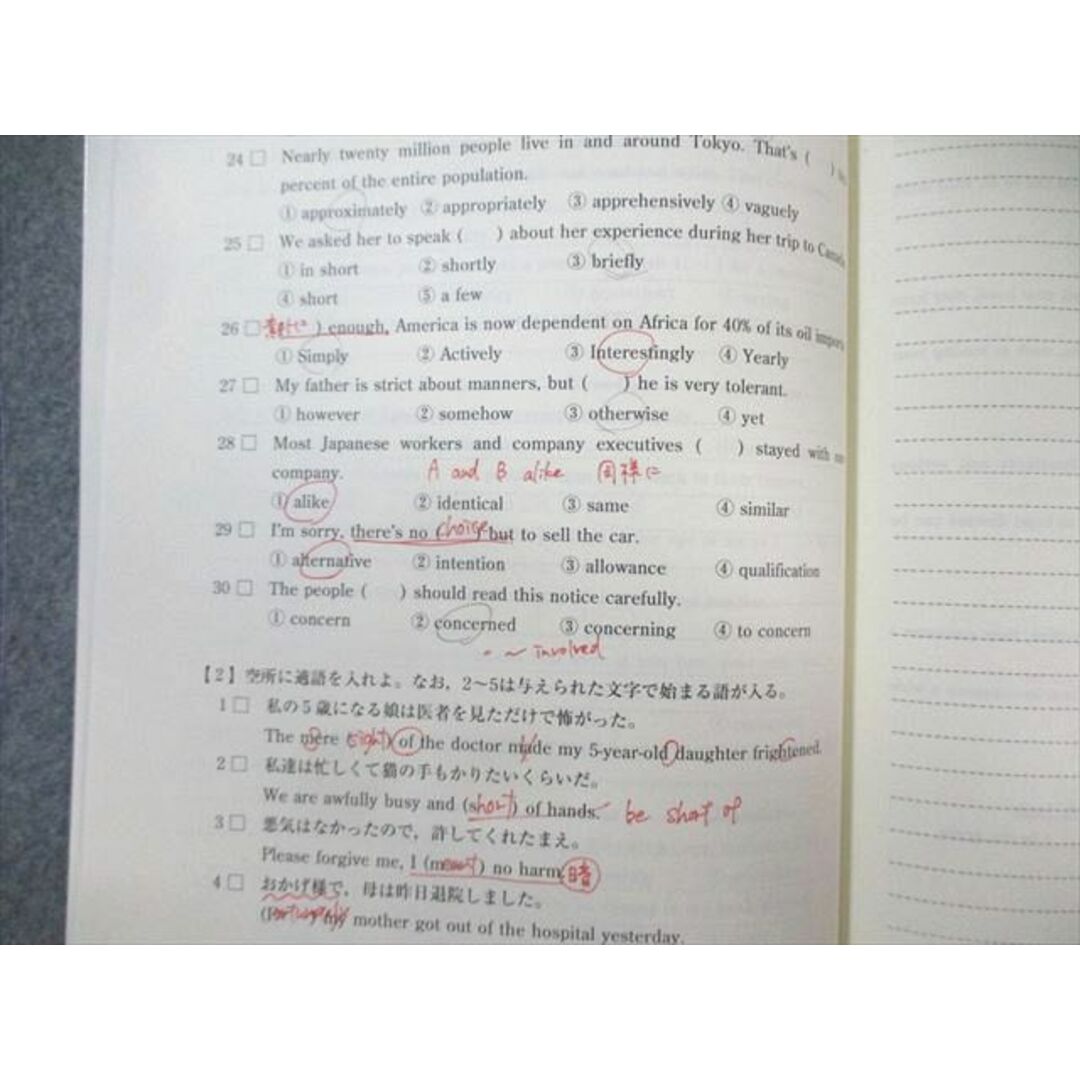 24 □ Nearly twenty million people live in and around Tokyo. That's (  )
percent of the entire population.
① approximately ② appropriately ③ apprehensively ④ vaguely
25 □ We asked her to speak (  ) about her experience during her trip to Canada
① in short ② shortly ③ briefly
④ short ⑤ a few
26 □ ) enough, America is now dependent on Africa for 40% of its oil impor
① Simply ② Actively ③ Interestingly ④ Yearly
27 □ My father is strict about manners, but (  ) he is very tolerant.
① however ② somehow ③ otherwise ④ yet
28 □ Most Japanese workers and company executives (  ) stayed with
company. A and B alike 同様に
① alike ② identical ③ same ④ similar
29 □ I'm sorry, there's no (choice) but to sell the car.
① alternative ② intention ③ allowance ④ qualification
30 □ The people (  ) should read this notice carefully.
① concern ② concerned ③ concerning ④ to concern
~ involved
【2】空所に適語を入れよ。なお，2～5は与えられた文字で始まる語が入る。
1 □ 私の5歳になる娘は医者を見ただけで怖がった。
The mere (sight) of the doctor made my 5-year-old daughter frightened.
2 □ 私達は忙しくて猫の手もかりたいくらいだ。
We are awfully busy and (short) of hands. be short of
3 □ 悪気はなかったので，許してくれたまえ。
Please forgive me, I (meant) no harm. 暗
4 □ おかげ様で，母は昨日退院しました。
my mother got out of the hospital yesterday.